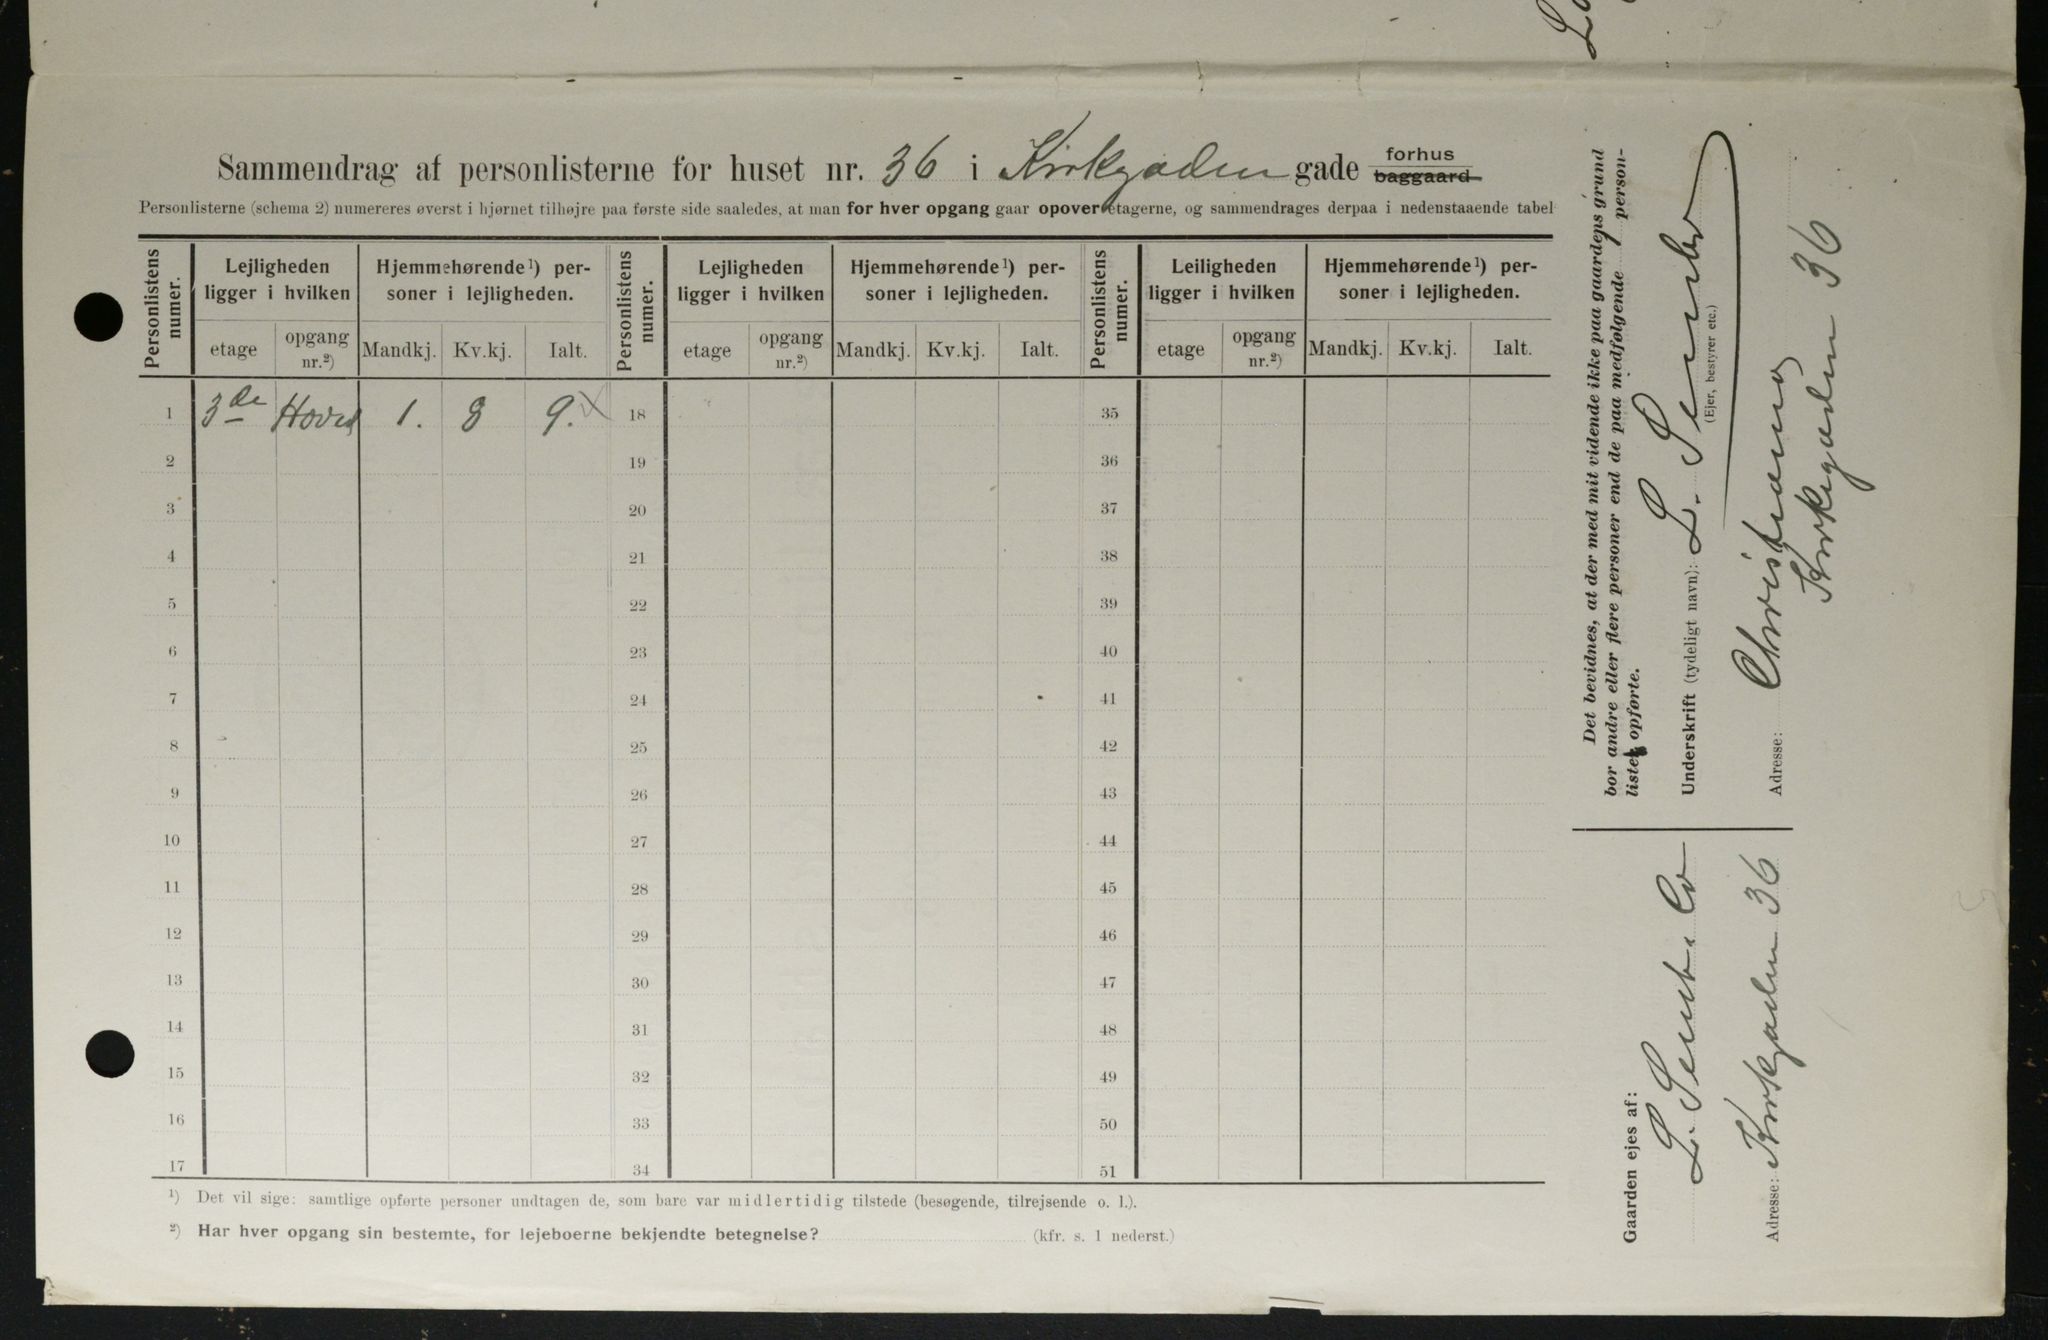 Sammendrag af personlisterne for huset nr. 36 i Kirkegaden gade forhus baggaard
Personlisterne (schema 2) numereres øverst i hjørnet tilhøjre paa første side saaledes, at man for hver opgang gaar opover etagerne, og sammendrages derpaa i nedenstaaende tabel
Personlistens numer. Lejligheden ligger i hvilken Hjemmehørende 1) personer i lejligheden. Personlistens numer. Lejligheden ligger i hvilken Hjemmehørende 1) personer i lejligheden. Personlistens numer. Leiligheden ligger i hvilken Hjemmehørende 1) personer i lejligheden.
etage opgang nr.2) Mandkj. Kv.kj. Ialt. etage opgang nr.2) Mandkj. Kv.kj. Ialt. etage opgang nr.2) Mandkj. Kv.kj. Ialt.
1 3de Hoved 1. 8 9. 18 35
2 19 36
3 20 37
4 21 38
5 22 39
6 23 40
7 24 41
8 25 42
9 26 43
10 27 44
11 28 45
12 29 46
13 30 47
14 31 48
15 32 49
16 33 50
17 34 51
1) Det vil sige: samtlige opførte personer undtagen de, som bare var midlertidig tilstede (besøgende, tilrejsende o. l.).
2) Har hver opgang sin bestemte, for lejeboerne bekjendte betegnelse? (kfr. s. 1 nederst.)
Det bevidnes, at der med mit vidende ikke paa gaardens grund
bor andre eller flere personer end de paa medfølgende 1 person-
liste opførte.
Underskrift (tydeligt navn): L.
(Ejer, bestyrer etc.)
Adresse: Christiania
Kirkegaden 36
Gaarden ejes af:
L. Co
Adresse: Kirkegaden 36